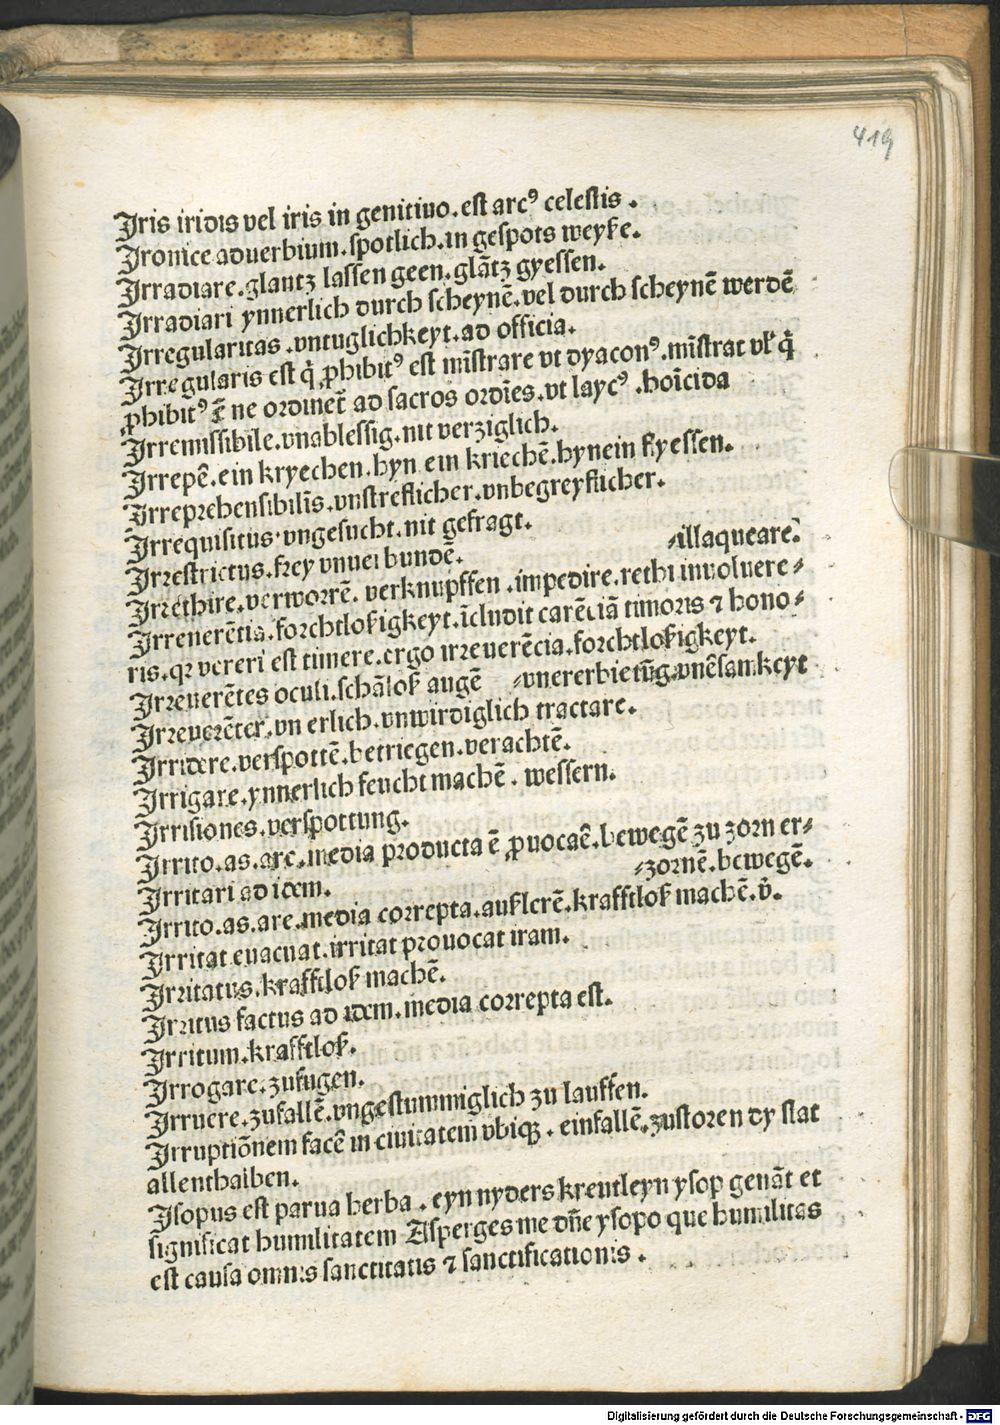 419
Iris iridis vel iris in genitiuo. est arcꝰ celestis .
Ironice aduerbium. spotlich. in gespots weyße.
Irradiare. glantz lassen geen. glātz gyessen.
Irradiari ynnerlich durch scheynē. vel durch scheynē werdē
Irregularitas . vntuglichkeyt. ad officia.
Irregularis est q̄ ꝓhibitꝰ est mīstrare vt dyaconꝰ. mīstrat vl̕ q̄
ꝓhibitꝰ ē ne ordinet̄ ad sacros ordīes. vt laycꝰ . hoīcida
Irremissibile. vnablessig. nit verziglich.
Irrepē. ein kryechen. hyn ein kriechē. hynein flyessen.
Irreprehensibilis. vnstreflicher. vnbegreyflicher.
Irrequisitus. vngesucht. nit gefragt.
Irrestrictus. frey vnuerbundē.
⸗illaqueare.
Irrethire. verworrē. verknupffen . impedire. rethi inuoluere⸗
Irreuerētia. forchtloßigkeyt. īcludit carēciā timoris ⁊ hono⸗
ris. qꝛ vereri est timere. ergo irreuerēcia. forchtloßigkeyt.
Irreuerētes oculi. schāloß augē ⸗vnererbietūg. vnēsamkeyt
Irreuerēter. vn erlich. vnwirdiglich tractare.
Irridere. verspottē. betriegen. verachtē.
Irrigare. ynnerlich feucht machē . wessern.
Irrisiones. verspottung.
Irrito. as. are. media producta ē ꝓuocaē. bewegē zu zorn er⸗
Irritari ad idem. ⸗zornē. bewegē.
Irrito. as. are. media correpta. auflerē. krafftloß machē. v̄.
Irritat euacuat. irritat prouocat iram.
Irritatus. krafftloß machē.
Irritus factus ad idem. media correpta est.
Irritum. krafftloß.
Irrogare. zufugen.
Irruere. zufallē. vngestummiglich zu lauffen.
Irruptiōnem facē in ciuitatem vbiqꝫ . einfallē. zustoren dy stat
allenthalben.
Isopus est parua herba . eyn nyders kreutleyn ysop genāt et
significat humilitatem Asperges me dn̄e ysopo que humilitas
est causa omnis sanctitatis ⁊ sanctificationis .
Digitalisierung gefördert durch die Deutsche Forschungsgemeinschaft - DFG